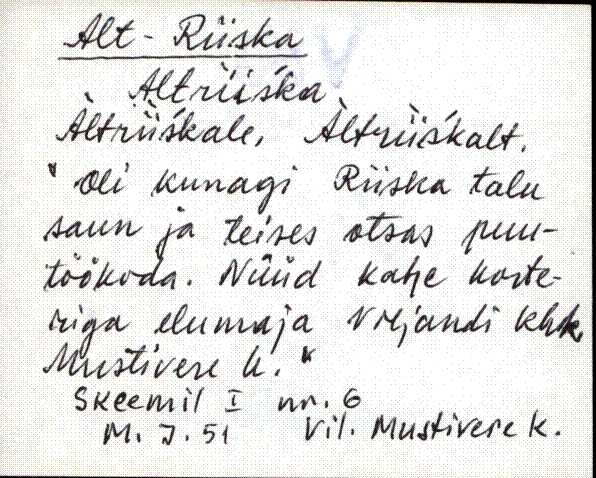 Alt-Riiska
Àltri̇̀i̇̀śka
Àltriiśkale, Àltriiśkalt.
" Oli kunagi Riiska talu
saun ja teises otsas puu-
töökoda. Nüüd kahe korte-
riga elumaja Viljandi khk.
Mustivere k. "
Skeemil I nr. 6
M. J. 51 Vil. Mustivere k.